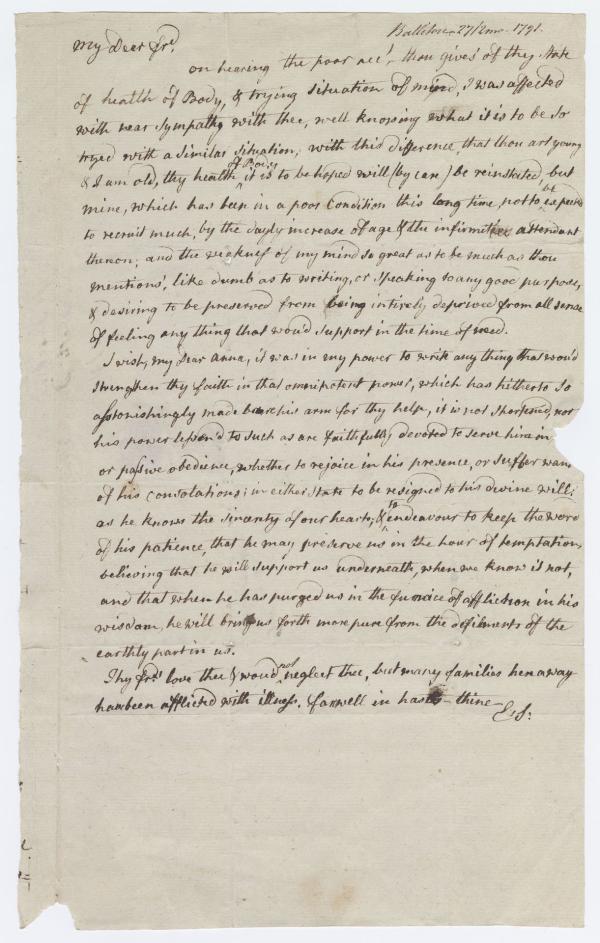 Ballitore 27/2mo. 1791.
My Dear Frd.
on hearing the poor acct. thou gives of thy State
of health of Body, & trying situation of mind, I was affected
with near Sympathy with thee, well knowing what it is to be so
tryed with a similar situation, with this difference, that thou art young
& I am old, thy health of Body it is to be hoped will (by care) be reinstated, but
mine, which has been in a poor Condition this long time, not to be expected
to recruit much, by the dayly increase of age & the infirmities attendant
thereon; and the weakness of my mind so great as to be much as thou
mentions, like dumb as to writing, or speaking to any good purpose,
& desiring to be preserved from being intirely deprived from all sense
of feeling any thing that woud support in the time of need.
I wish, my dear Anna, it was in my power to write any thing that woud
strengthen thy faith in that omnipotent power, which has hitherto so
astonishingly made bare his arm for thy help, it is not shortened, nor
his power lessend to such as are faithfully devoted to serve him in
or passive obedience, whether to rejoice in his presence, or suffer want
of his consolations; in either state to be resigned to his divine will;
as he knows the sincerity of our hearts, & to endeavour to keep the word
of his patience, that he may preserve us in the hour of temptation,
believing that he will support us underneath, when we know it not,
and that when he has purged us in the furnace of affliction in his
wisdom, he will bring us forth more pure from the defilements of the
earthly part in us.
Thy frds love thee & woud not neglect thee, but many families here away
has been afflicted with illness. farwell in haste - thine -
E. S: